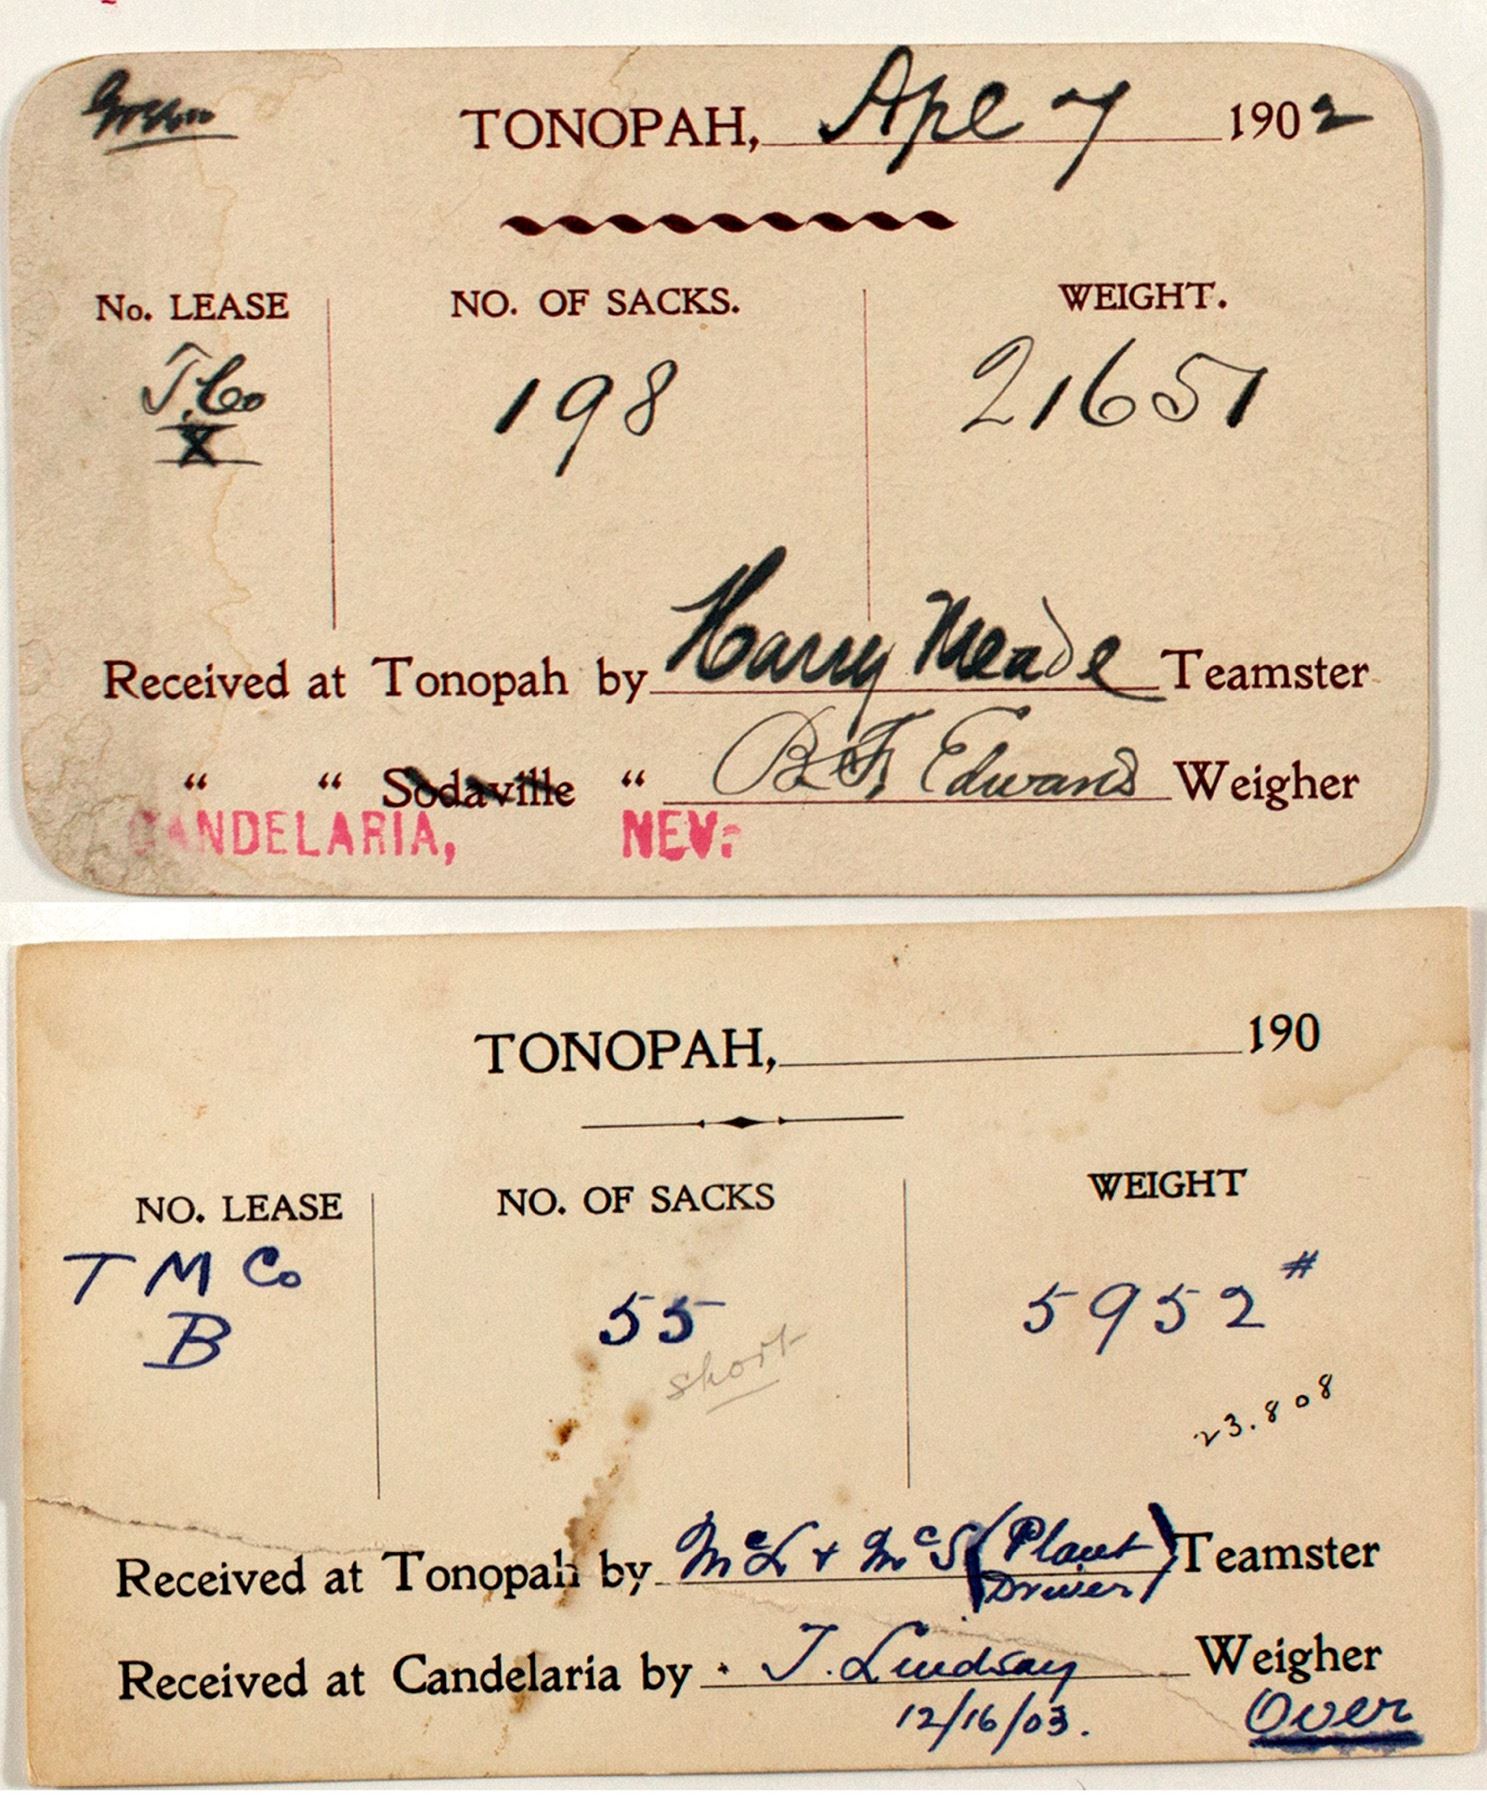 TONOPAH, Apl 7 1902
No. LEASE NO. OF SACKS. WEIGHT.
T. Co 198 21651
X
Received at Tonopah by Harry Meade Teamster
" " Sodaville " B F Edwards Weigher
CANDELARIA, NEV.
TONOPAH, 190
NO. LEASE NO. OF SACKS WEIGHT
T M Co 55 5952 #
B short
23.808
Received at Tonopah by McL + McS (Plant Driver) Teamster
Received at Candelaria by T. Lindsay Weigher
12/16/03. Over